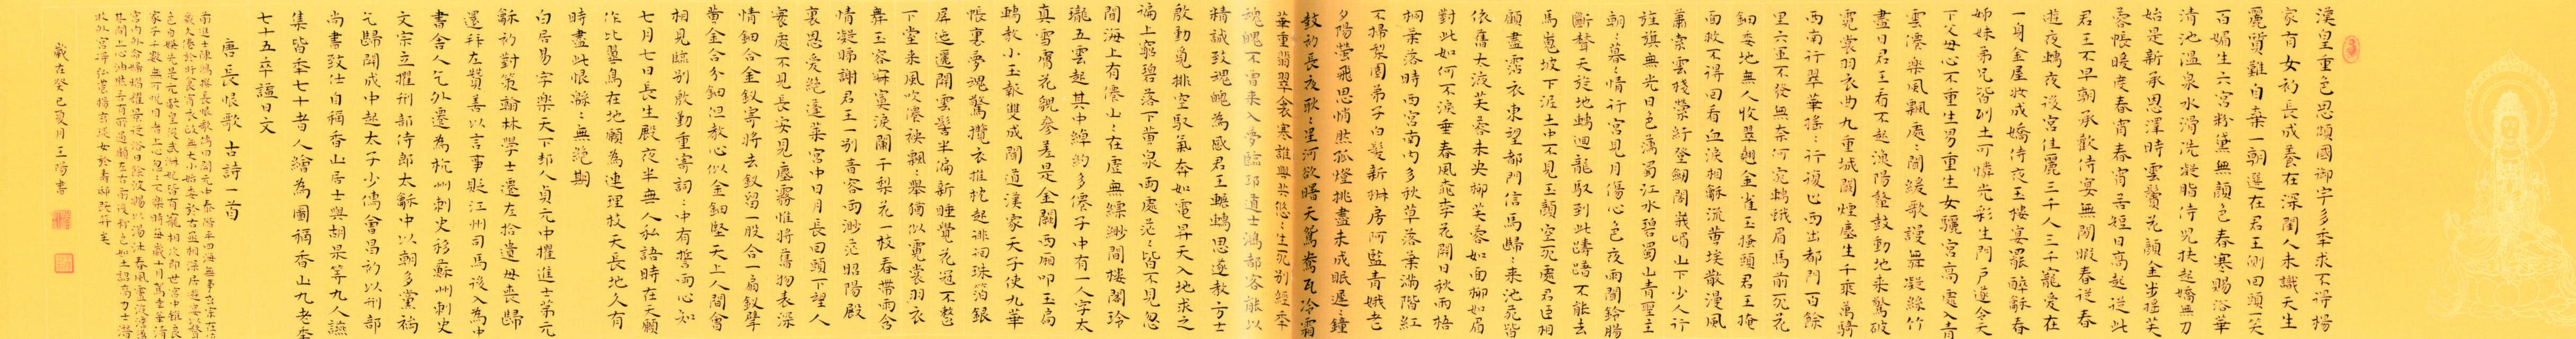 漢皇重色思傾國御宇多年求不得楊
家有女初長成養在深閨人未識天生
麗質難自棄一朝選在君王側回頭一笑
百媚生六宮粉黛無顏色春寒賜浴華
清池溫泉水滑洗凝脂侍兒扶起嬌無力
始是新承恩澤時雲鬢花顏金步搖芙
蓉帳暖度春宵春宵苦短日高起從此
君王不早朝承歡侍宴無閒暇春從春
遊夜轉夜後宮佳麗三千人三千寵愛在
一身金屋妝成嬌侍夜玉樓宴罷醉龢春
姊妹弟兄皆列土可憐光彩生門戶遂令天
下父母心不重生男重生女驪宮高處入青
雲僊樂風飄處:聞緩歌謾舞凝絲竹
盡日君王看不足漁陽鼙鼓動地來驚破
霓裳羽衣曲九重城闕煙塵生千乘萬騎
西南行翠華搖:行復止西出都門百餘
里六軍不發無奈何宛轉蛾眉馬前死花
鈿委地無人收翠翹金雀玉搔頭君王掩
面救不得回看血淚相龢流黃埃散漫風
蕭索雲棧縈紆登劍閣峨嵋山下少人行
旌旗無光日色薄蜀江水碧蜀山青聖主
朝:暮:情行宮見月傷心色夜雨聞鈴腸
斷聲天旋地轉迴龍馭到此躊躇不能去
馬嵬坡下泥土中不見玉顏空死處君臣相
顧盡霑衣東望都門信馬歸:來池苑皆
依舊太液芙蓉未央柳芙蓉如面柳如眉
對此如何不淚垂春風桃李花開日秋雨梧
桐葉落時西宮南內多秋草落葉滿階紅
不掃梨園弟子白髮新椒房阿監青娥老
夕陽螢飛思悄然孤燈挑盡未成眠遲:鐘
鼓初長夜耿:星河欲曙天鴛鴦瓦冷霜
華重翡翠衾寒誰與共悠:生死別經年
魂魄不曾來入夢臨邛道士鴻都客能以
精誠致魂魄為感君王輾轉思遂教方士
殷勤覓排空馭氣奔如電昇天入地求之
遍上窮碧落下黃泉兩處茫:皆不見忽
聞海上有僊山:在虛無縹緲間樓閣玲
瓏五雲起其中綽約多僊子中有一人字太
真雪膚花貌參差是金闕西廂叩玉扃
轉教小玉報雙成聞道漢家天子使九華
帳裏夢魂驚攬衣推枕起徘徊珠箔銀
屏迤邐開雲鬢半偏新睡覺花冠不整
下堂來風吹僊袂飄:舉猶似霓裳羽衣
舞玉容寂寞淚闌干梨花一枝春帶雨含
情凝睇謝君王一別音容兩渺茫昭陽殿
裏恩愛絕蓬萊宮中日月長回頭下望人
寰處不見長安見塵霧惟將舊物表深
情鈿合金釵寄將去釵留一股合一扇釵擘
黃金合分鈿但教心似金鈿堅天上人間會
相見臨別殷勤重寄詞:中有誓兩心知
七月七日長生殿夜半無人私語時在天願
作比翼鳥在地願為連理枝天長地久有
時盡此恨綿:無絕期
白居易字樂天下邽人貞元中擢進士第元
龢初對策翰林學士遷左拾遺母喪歸
還拜左贊善以言事貶江州司馬後入為中
書舍人乞外遷為杭州刺史移蘇州刺史
文宗立擢刑部侍郎太龢中以朝多黨禍
乞歸開成中起太子少傅會昌初以刑部
尚書致仕自稱香山居士與胡杲等九人讌
集皆年七十者人繪為圖稱香山九老卒
七十五卒諡曰文
唐長恨歌古詩一首
歲在癸巳夏月王陽書